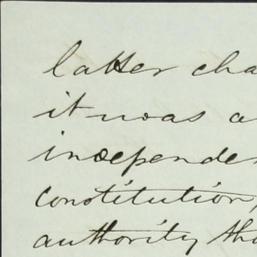 latter cha
it was a
independe
constitution,
authority tha